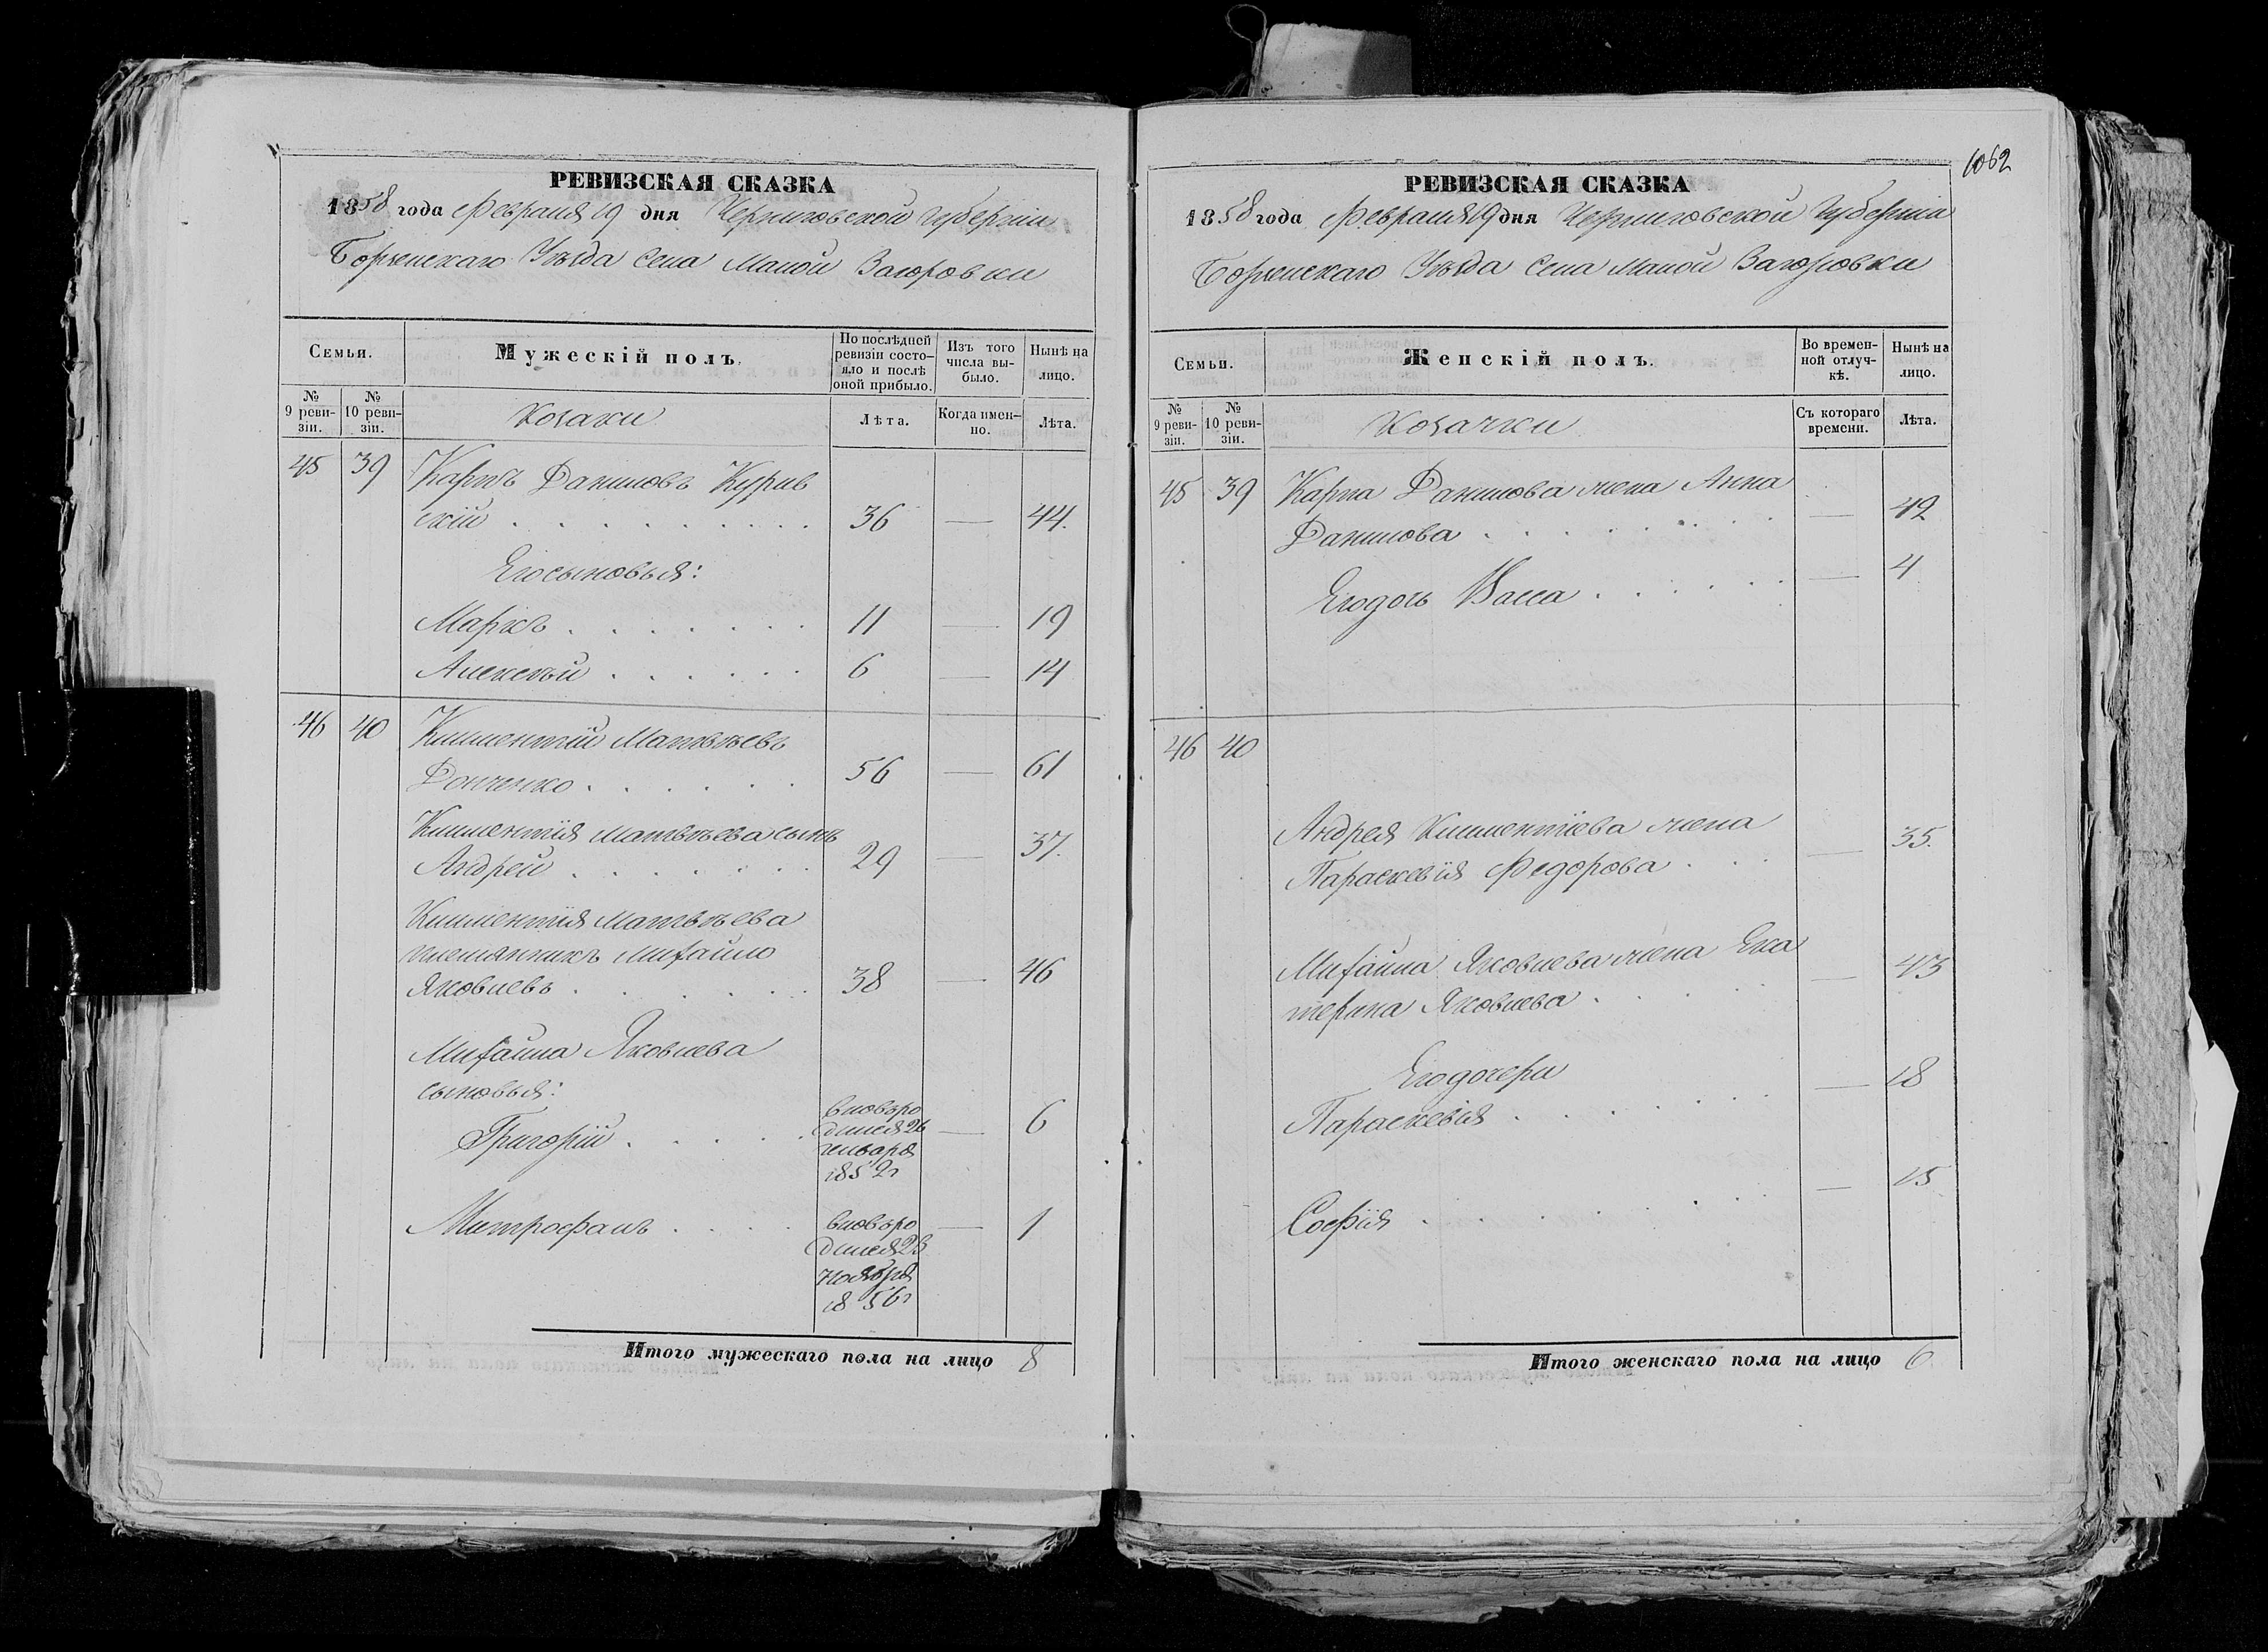 РЕВИЗСКАЯ СКАЗКА
1858 года Февраля 19 дня Черниговской Губерніи
Борзенскаго Уѣзда Села Малой Загоровки
Семьи.
Мужескій полъ.
По послѣдней ревизіи состо-
яло и послѣ оной прибыло.
Изъ того числа вы-
было.
Нынѣ на лицо.
№ 9 реви-
зіи.
№ 10 реви-
зіи.
Козаки
Лѣта.
Когда имен-
но.
Лѣта.
45 39 Карпъ Даниловъ Курив
скій . . . 36 — 44.
Его сыновья:
Маркъ . . . 11 — 19
Алексѣй . . . 6 — 14
46 40 Климентій Матвѣевъ
Донченко . . . 56 — 61
Климентія Матвѣева сынъ
Андрей . . . 29 — 37.
Климентія Матвѣева
племянникъ Михайло
Яковлевъ . . . 38 — 46
Михайла Яковлева
сыновья:
Григорій . . . вновьро
дился 26
генваря
1852 г — 6
Митрофанъ . . . вновьро
дился 23
ноября
1856 г — 1
Итого мужескаго пола на лицо 8
1062
РЕВИЗСКАЯ СКАЗКА
1858 года Февраля 19 дня Черниговской Губерніи
Борзенскаго Уѣзда Села Малой Загоровки
Семьи.
Женскій полъ.
Во времен-
ной отлуч-
кѣ.
Нынѣ на
лицо.
№
9 реви-
зіи.
№
10 реви-
зіи.
Козачки
Съ котораго
времени.
Лѣта.
45 39 Карпа Данилова жена Анна
Данилова . . . — 42
Его дочь Васса . . . — 4
46 40
Андрея Климентіева жена
Параскевія Федорова . . . — 35.
Михайла Яковлева жена Ека
терина Яковлева . . . — 43
Его дочери
Параскевія . . . — 18
Софія . . . — 15
Итого женскаго пола на лицо 6